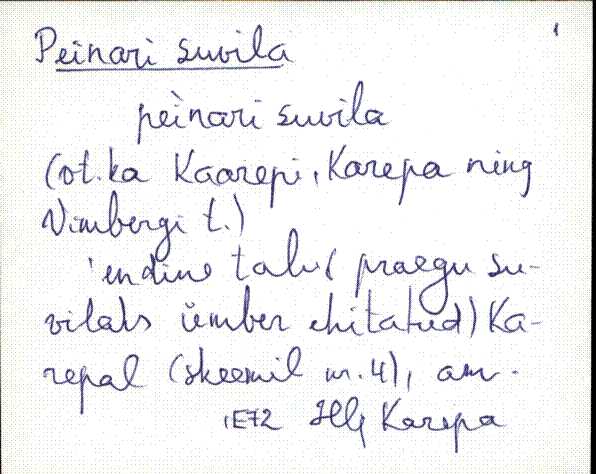 1
Peinari suvila
peìnari suvila
(ot. ka Kaarepi, Karepa ning
Vimbergi t.)
'endine talu (praegu su-
vilaks ümber ehitatud) Ka-
repal (skeemil nr. 4), am.
E72 Hlj Karepa